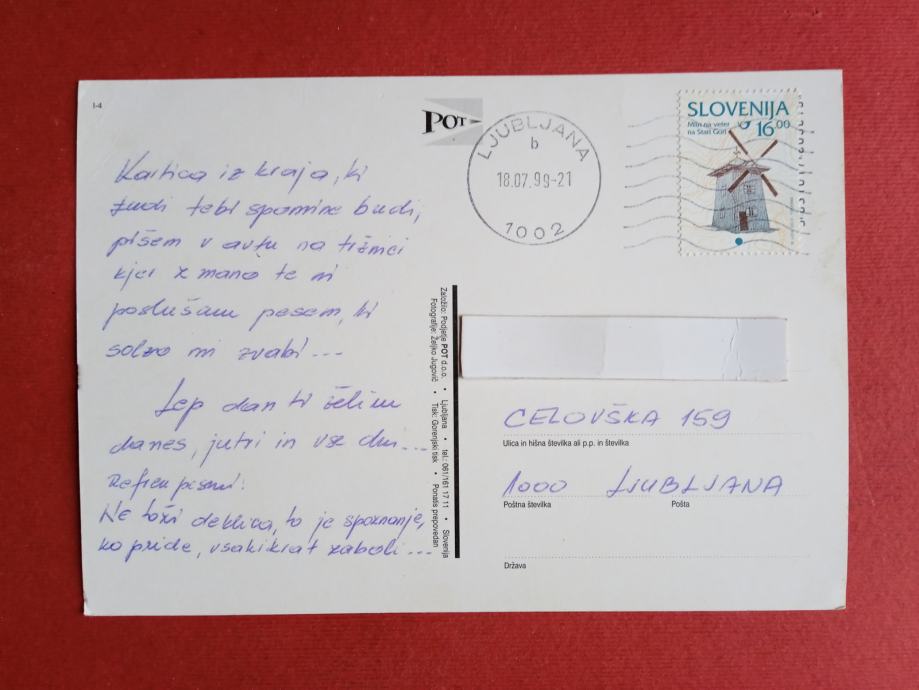 I-4
POT
LJUBLJANA
b
18.07.99-21
1002
SLOVENIJA
Mlin na veter
na Stari Gori
16.00
Kartica iz kraja, ki
tudi tebi spomine budi,
pišem v avtu na tržnici
kjer z mano te ni
poslušam pesem, ki
solzo mi zvabi...
Lep dan ti želim
danes, jutri in vse dni...
Refren pesmi:
Ne toži deklica, to je spoznanje,
ko pride, vsakikrat zaboli...
Založilo: Podjetje POT d.o.o. • Ljubljana • tel.: 061/161 17 11 • Slovenija
Fotografije: Željko Jugovič • Tisk: Gorenjski tisk • Ponatis prepovedan
CELOVŠKA 159
Ulica in hišna številka ali p.p. in številka
1000 LJUBLJANA
Poštna številka Pošta
Država